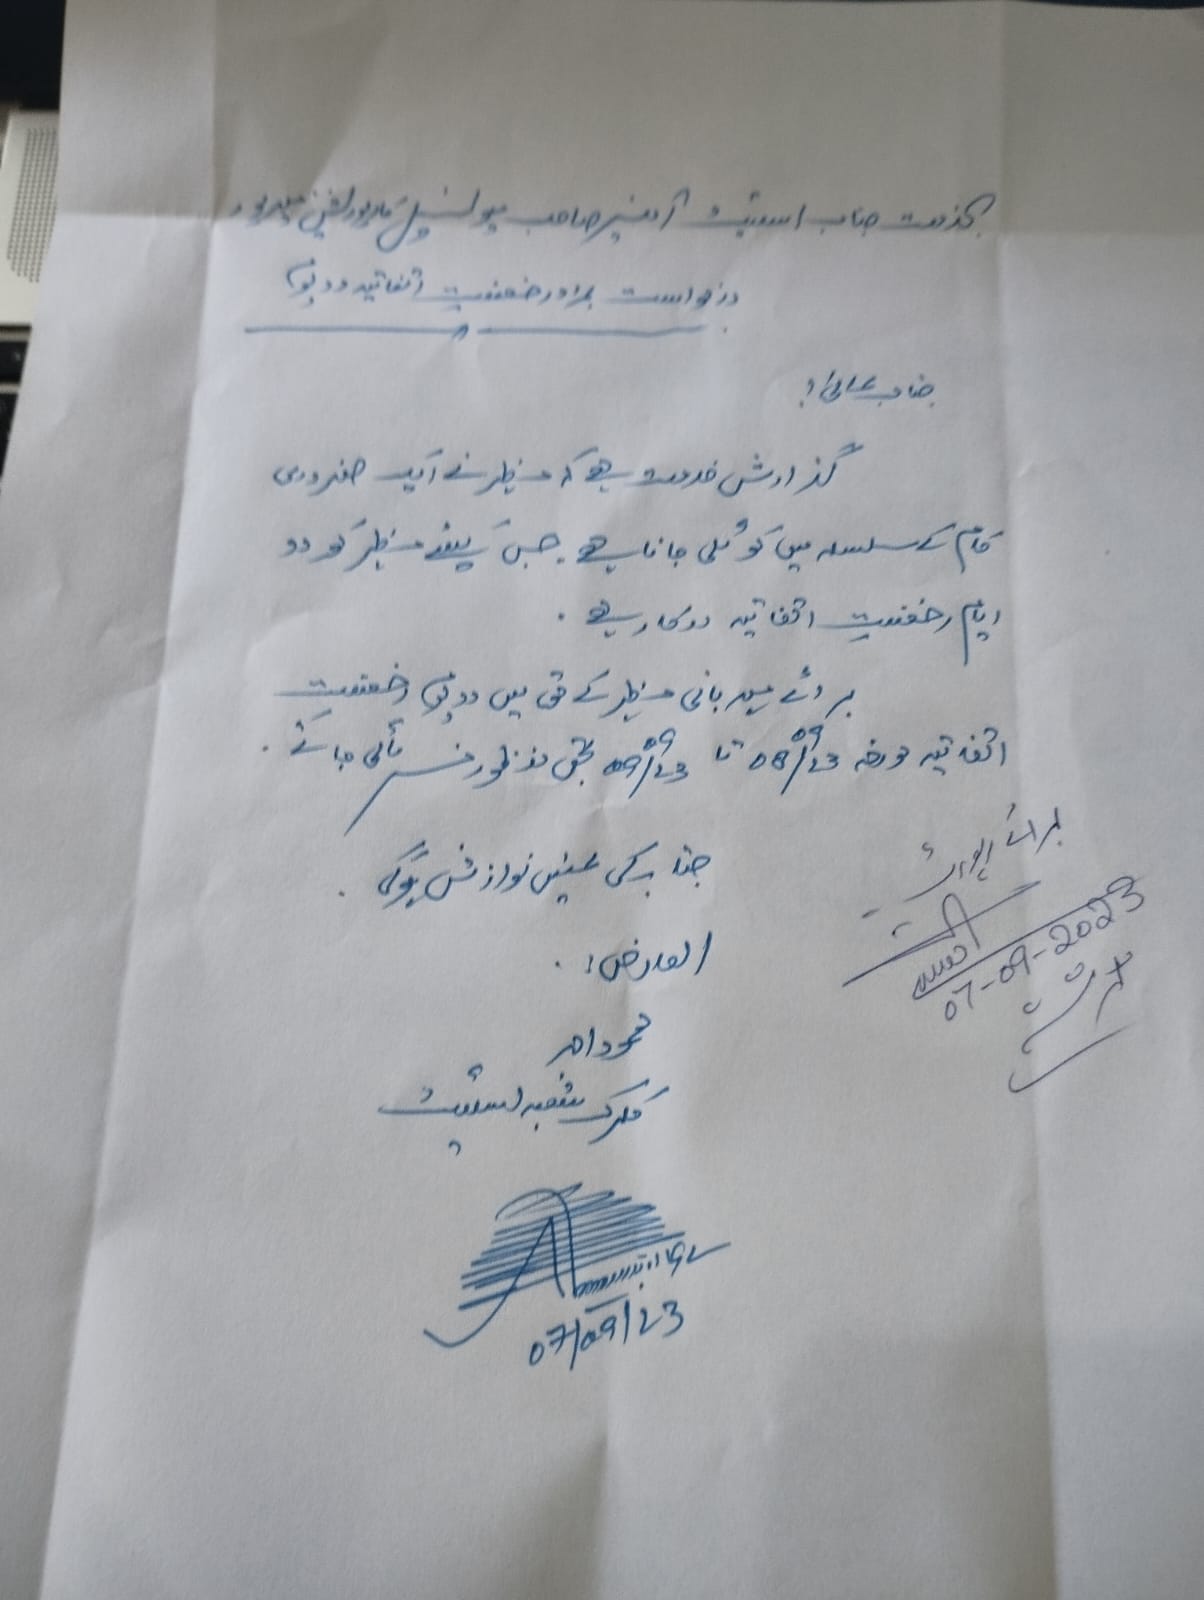 بخدمت جناب اسٹیٹ آفیسر صاحب میونسپل کارپوریشن میرپور
درخواست بمراد رخصت اتفاقیہ دو یوم
جناب عالی!
گذارش خدمت ہے کہ مظہر نے ایک ضروری
کام کے سلسلہ میں کوٹلی جانا ہے۔ جس کیلئے مظہر کو دو
ایام رخصت اتفاقیہ درکار ہے۔
برائے مہربانی مظہر کے حق میں دو یوم رخصت
اتفاقیہ مورخہ 08/09/23 تا 09/09/23 بحق منظور فرمائی جائے۔
جناب کی عین نوازش ہوگی۔
العارض:
محمود احمد
کلرک شعبہ اسٹیٹ
07/09/23
برائے رپورٹ
07-09-2023